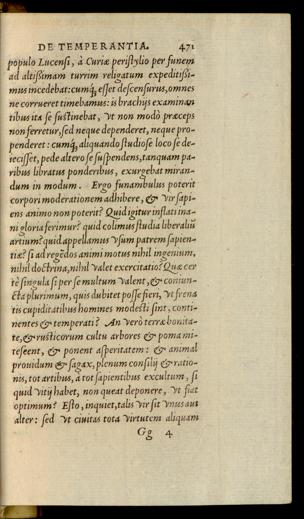 DE TEMPERANTIA. 471
populo Lucensi, à Curiæ peristylio per funem
ad altissimam turrim religatum expeditissi-
mus incedebat: cumq́, esset descensurus, omnes
ne corrueret timebamus: is brachijs examinan
tibus ita se sustinebat, vt non modò præceps
non ferretur, sed neque dependeret, neque pro-
penderet: cumq́, aliquando studiose loco se de-
iecisset, pede altero se suspendens, tanquam pa-
ribus libratus ponderibus, exurgebat miran-
dum in modum. Ergo funambulus poterit
corpori moderationem adhibere, & vir sapi-
ens animo non poterit? Quid igitur inflati ina-
ni gloria ferimur? quid colimus studia liberaliũ
artium? quid appellamus vsum patrem sapien-
tiæ? si ad regẽdos animi motus nihil ingenium,
nihil doctrina, nihil valet exercitatio? Quæ cer
tè singula si per se multum valent, & coniun-
cta plurimum, quis dubitet posse fieri, vt frena
tis cupiditatibus homines modesti sint, conti-
nentes & temperati? An verò terræ bonita-
te, & rusticorum cultu arbores & poma mi-
tescent, & ponent asperitatem: & animal
prouidum & sagax, plenum consilij & ratio-
nis, tot artibus, à tot sapientibus excultum, si
quid vitij habet, non queat deponere, vt fiat
optimum? Esto, inquiet, talis vir sit vnus aut
alter: sed vt ciuitas tota virtutem aliquam
Gg 4